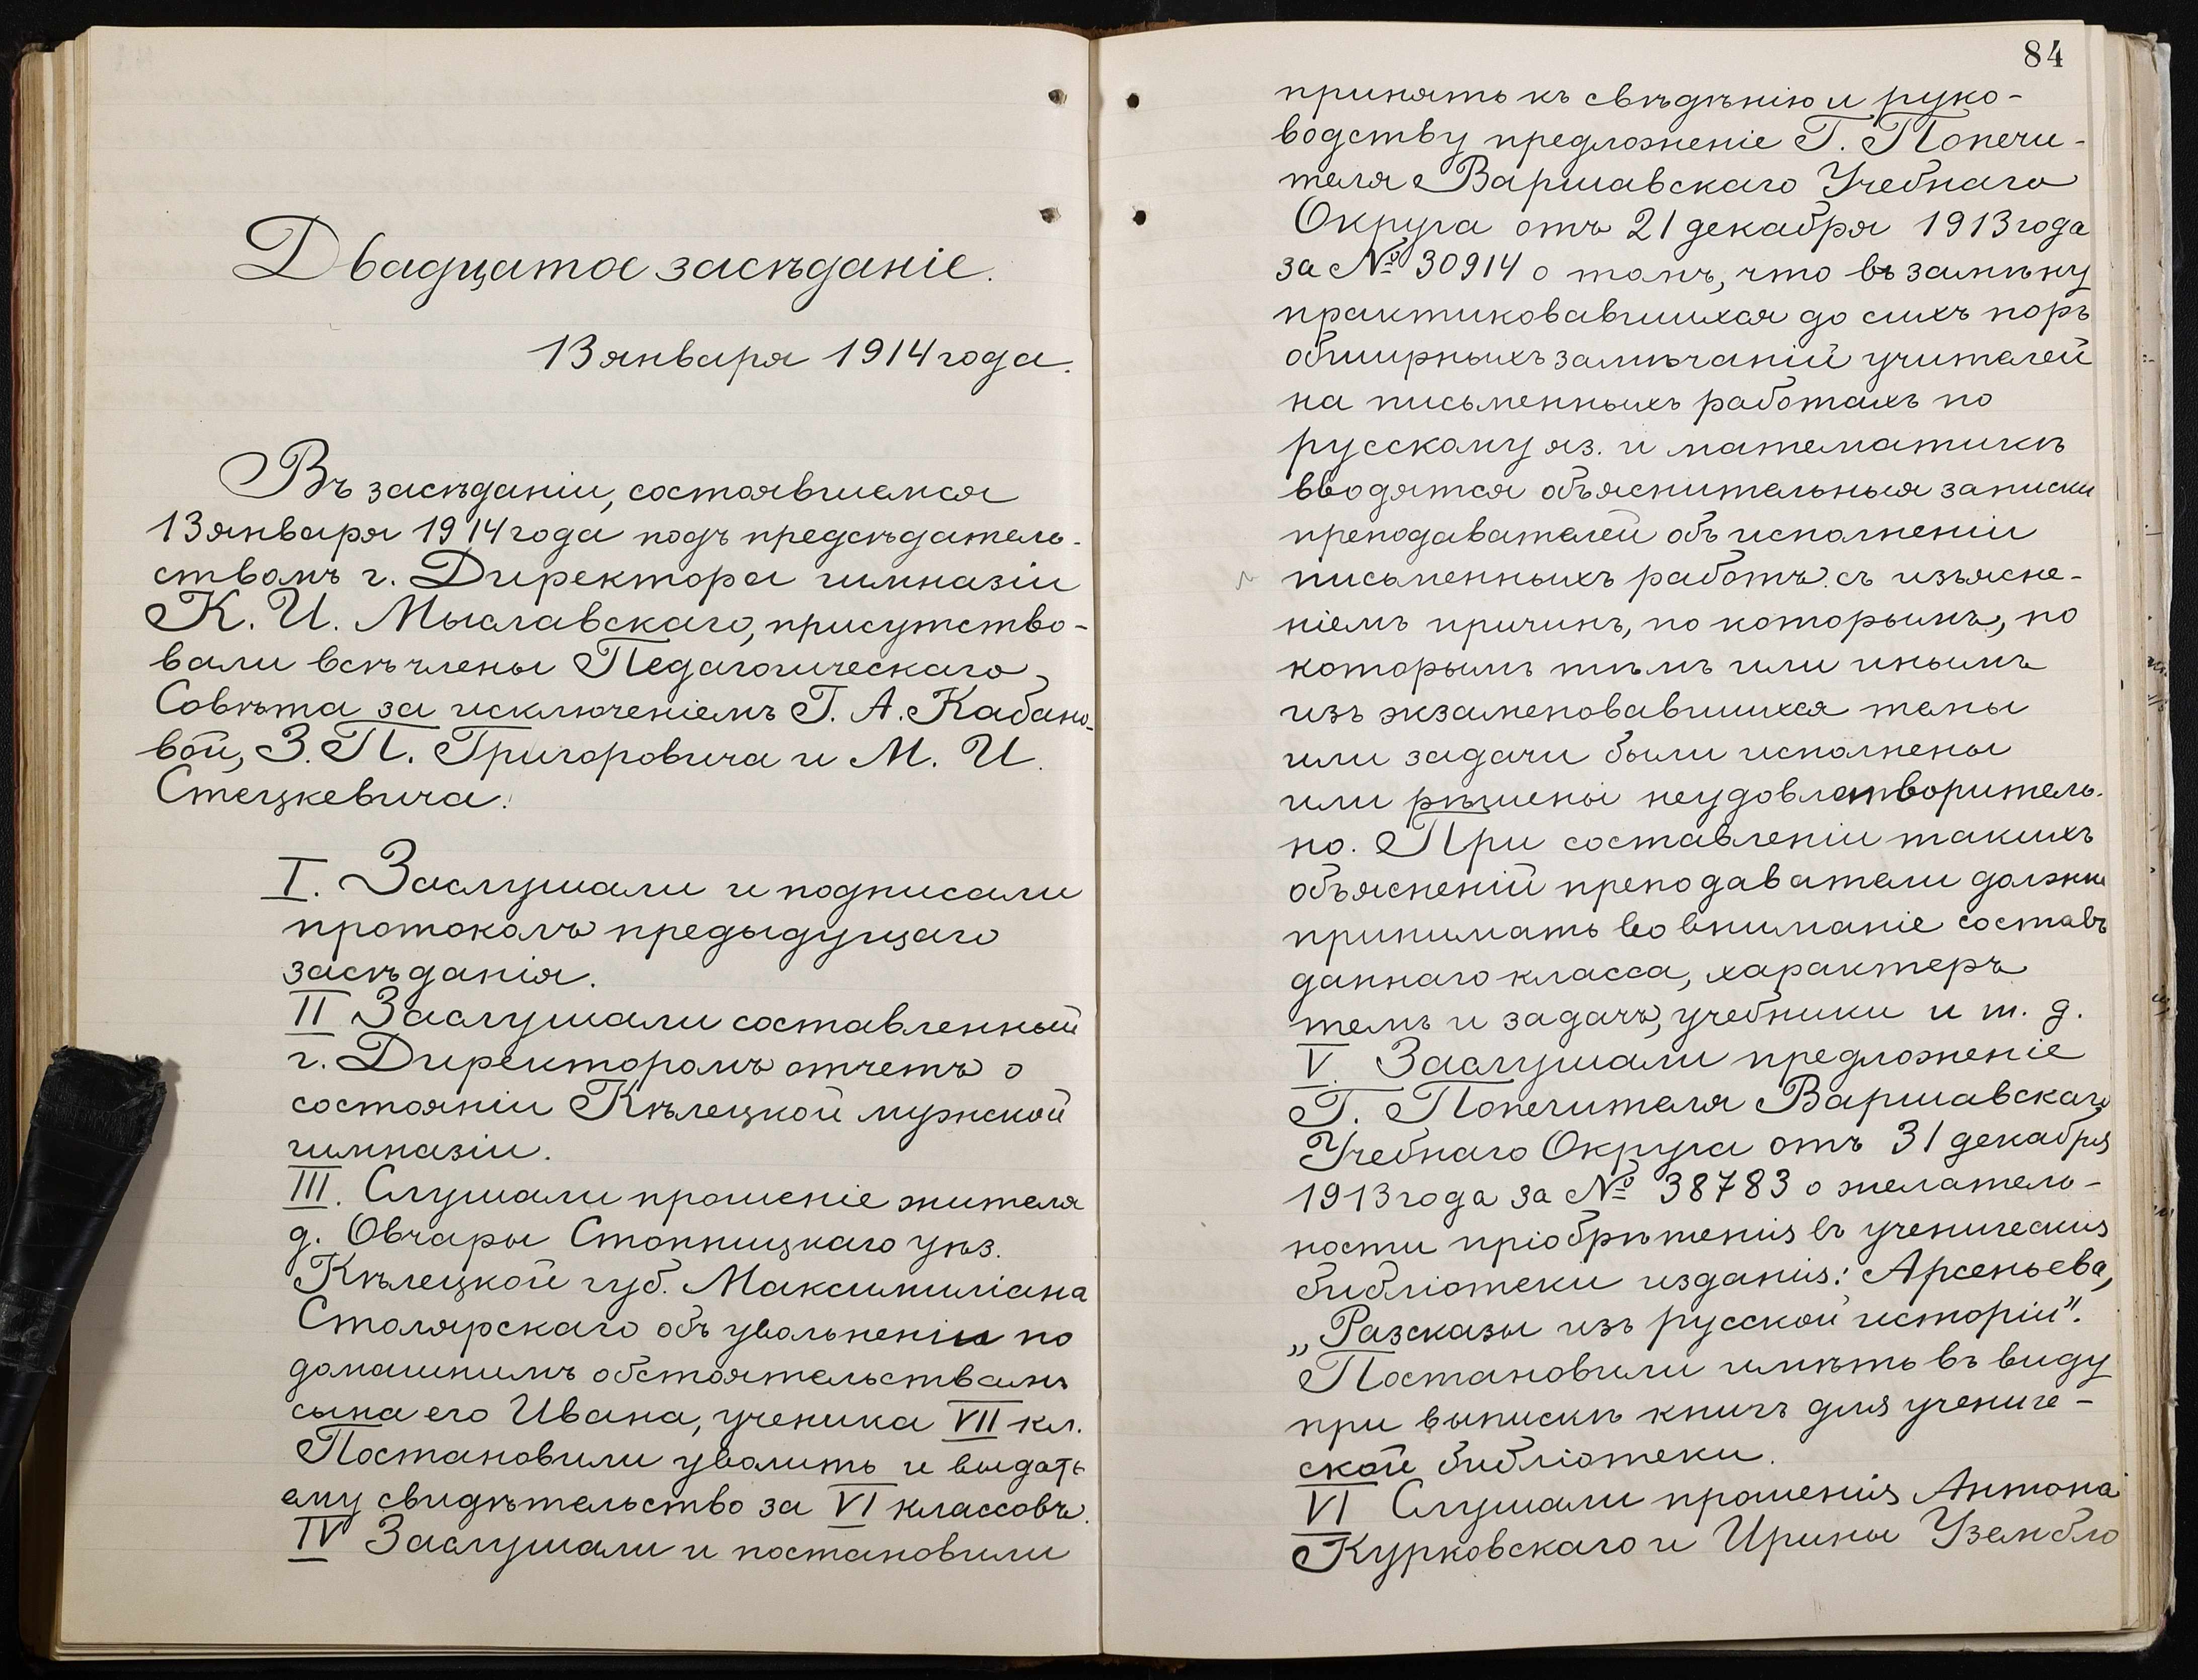 Двадцатое засѣданіе.
13 января 1914 года.
Въ засѣданіи, состоявшемся
13 января 1914 года подъ предсѣдатель-
ствомъ г. Директора гимназіи
К. И. Мыславскаго, присутство-
вали всѣ члены Педагогическаго
Совѣта за исключеніемъ Г. А. Кабано-
вой, З. П. Григоровича и М. И.
Стецкевича.
I. Заслушали и подписали
протоколъ предыдущаго
засѣданія.
II Заслушали составленный
г. Директоромъ отчетъ о
состояніи Кѣлецкой мужской
гимназіи.
III. Слушали прошеніе жителя
д. Овчары Стопницкаго уѣз.
Кѣлецкой губ. Максимиліана
Столярскаго объ увольненіи по
домашнимъ обстоятельствамъ
сына его Ивана, ученика VII кл.
Постановили уволить и выдать
ему свидѣтельство за VI классовъ.
IV Заслушали и постановили
84
принять къ свѣдѣнію и руко-
водству предложеніе Г. Попечи-
теля Варшавскаго Учебнаго
Округа отъ 21 декабря 1913 года
за № 30914 о томъ, что въ замѣну
практиковавшихся до сихъ поръ
обширныхъ замѣчаній учителей
на письменныхъ работахъ по
русскому яз. и математикѣ
вводятся объяснительныя записки
преподавателей объ исполненіи
письменныхъ работъ съ изъясне-
ніемъ причинъ, по которымъ, по
которымъ тѣмъ или инымъ
изъ экзаменовавшихся темы
или задачи были исполнены
или рѣшены неудовлетворитель-
но. При составленіи такихъ
объясненій преподаватели должны
принимать во вниманіе составъ
даннаго класса, характеръ
темъ и задачъ, учебники и т. д.
V. Заслушали предложеніе
Г. Попечителя Варшавскаго
Учебнаго Округа отъ 31 декабря
1913 года за № 38783 о желатель-
ности пріобрѣтенія въ ученическія
библіотеки изданія: Арсеньева,
„Разсказы изъ русской исторіи".
Постановили имѣть въ виду
при выпискѣ книгъ для учениче-
ской библіотеки.
VI Слушали прошенія Антона
Курковскаго и Ирины Узембло